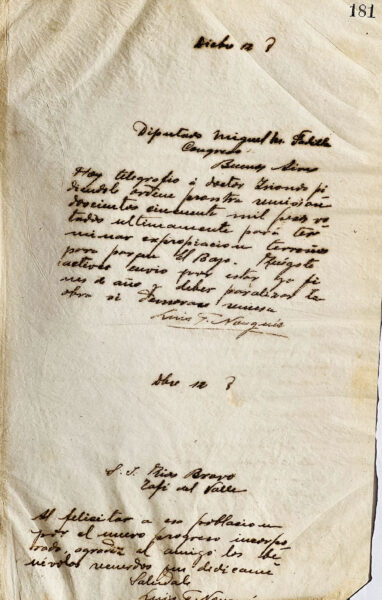 181
Dicbre 12 ?
Diputado Miguel M. Padilla
Congreso
Buenos Aires
Hoy telegrafio á doctor Iriondo pi
diendole ordene pronta remisión
doscientos cincuenta mil pesos vo
tados ultimamente para ter
minar expropiacion terrenos
para parque El Bajo. Ruégole
active envio por estar ya fi
nes de año y deber paralizar la
obra si demorase remesa
Luis F. Nougués
Dbre 12 ?
S. J. Frias Bravo
Tafi del Valle
Al felicitar a esa poblacion
por el nuevo progreso incorpo
rado, agradezco al amigo los be
névolos recuerdos que dedicame
Salúdale
Luis F. Nougués